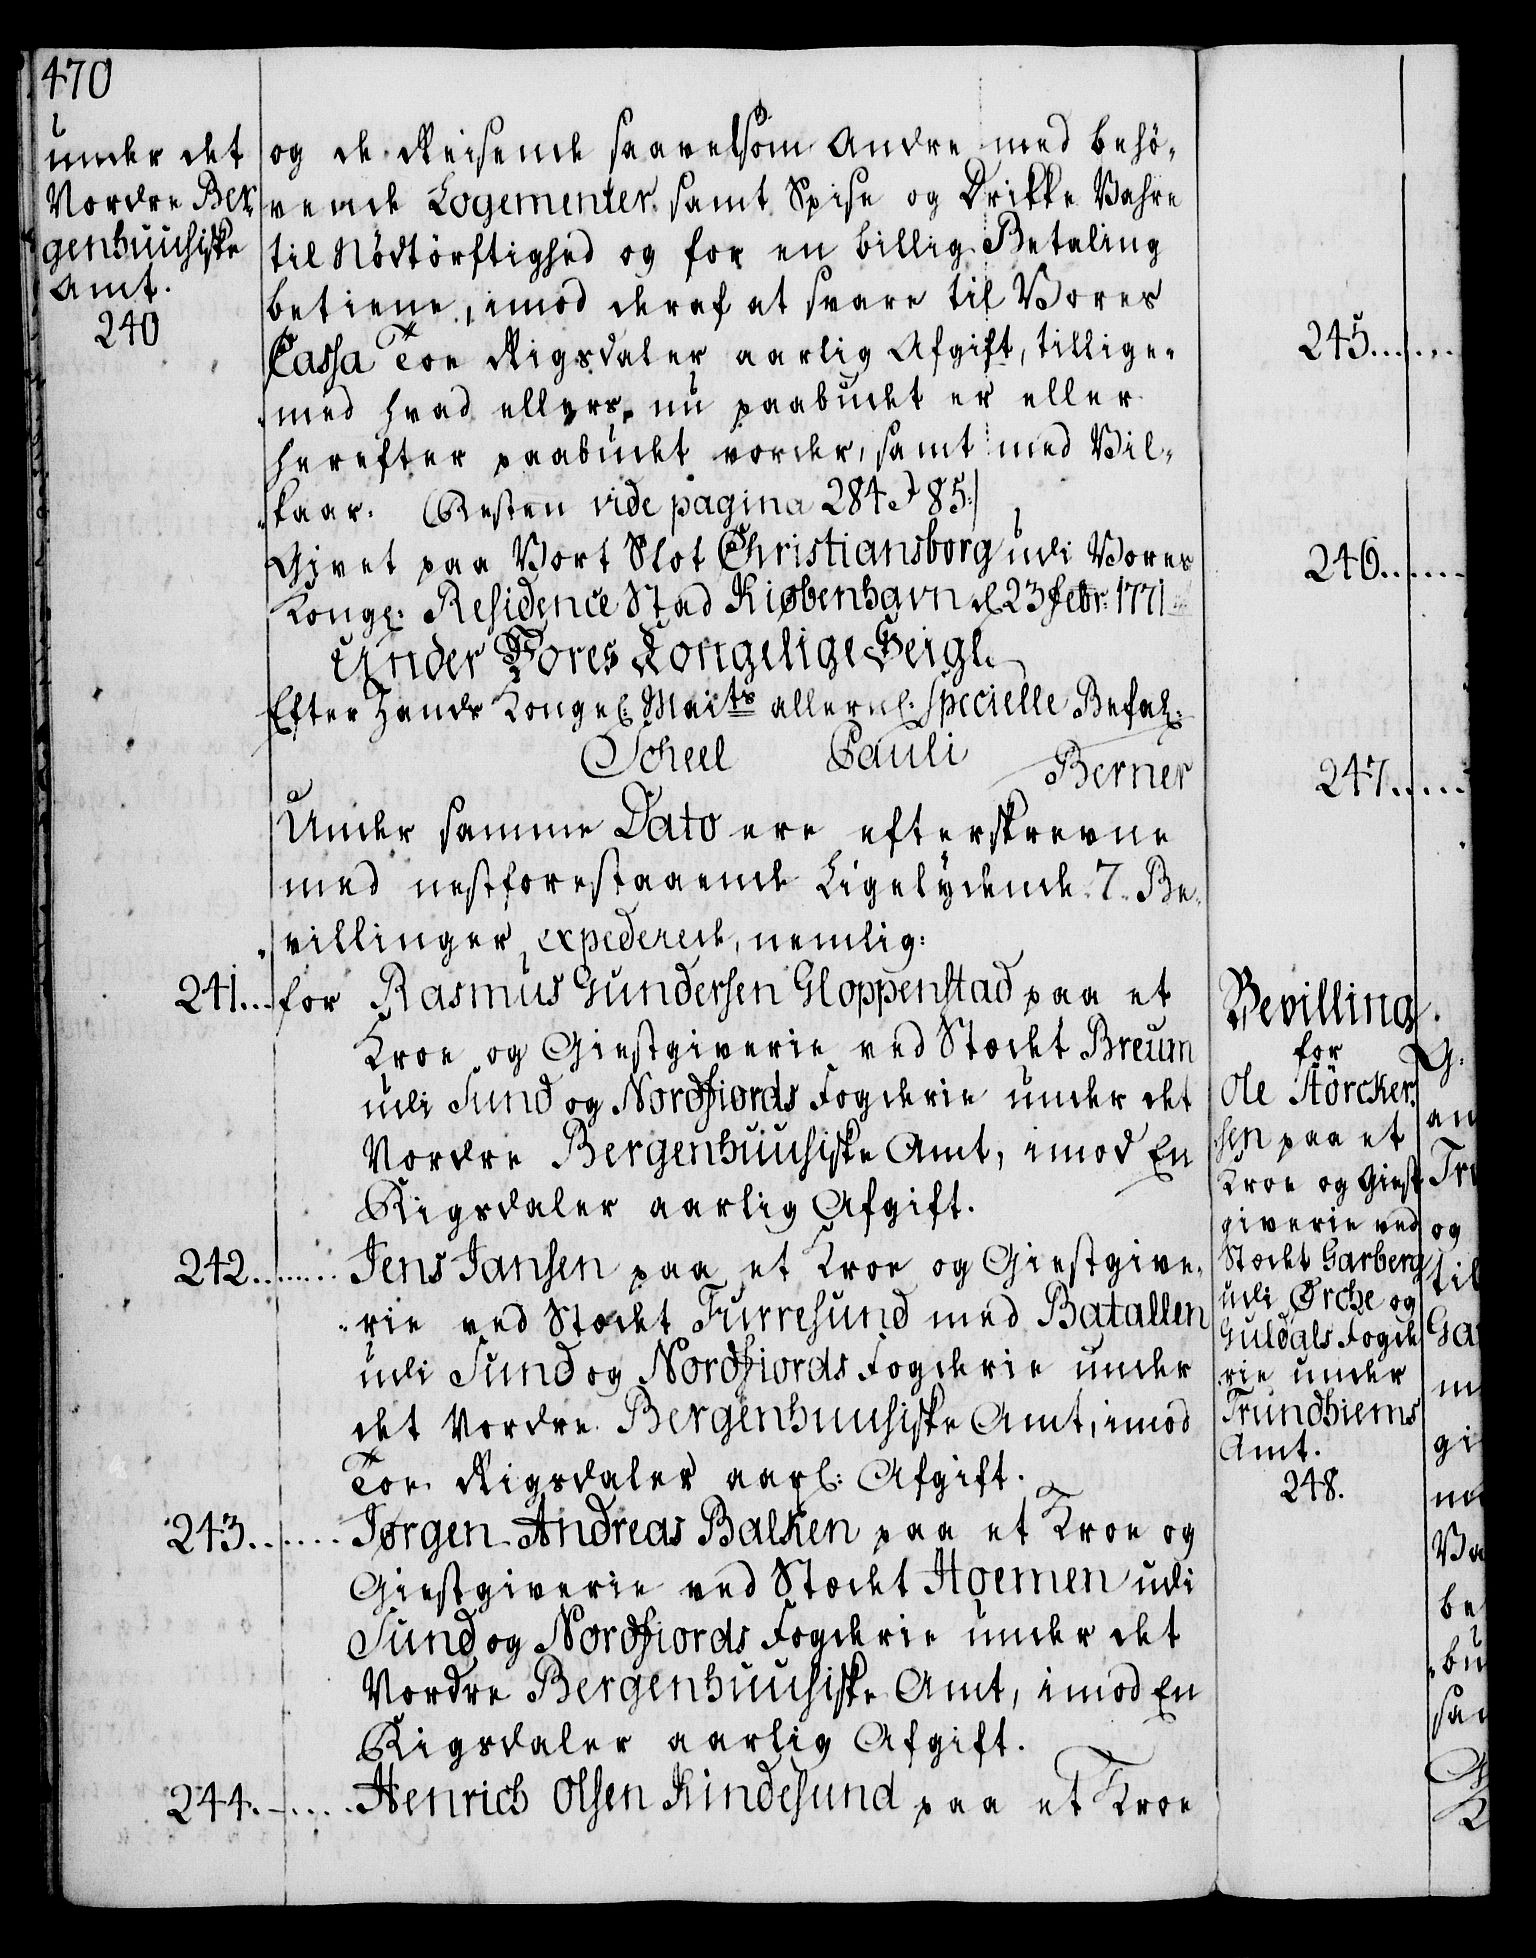 470
under det
Nordre Ber„
genhuusiske
Amt.
240
og de Reisende saavelsom Andre med behö„
vende Logementer samt Spise og Drikke Vahre
til Nödtörftighed og for en billig Betaling
betiene, imod deraf at svare til Vores
Cassa Toe Rigsdaler aarlig Afgift, tillige„
„med hvad ellers nu paabudet er eller
herefter paabudet vorder, samt med Vil„
„kaar. (Resten vide pagina 284 & 85:)
Givet paa Vort Slot Christiansborg udi Vores
Kongel. Residence Stad Kiøbenhavn d 23 Febr: 1771
Under Vores Kongelige Seigl.
Efter Hands Kongel: Maits allernd: specielle Befal:
Scheel Pauli Berner
Under samme Dato ere efterskrevne
med nestforestaaende Ligelydende 7. Be„
„villinger expederede, nemlig:
241... for Rasmus Gundersen Gloppenstad paa et
Kroe og Giestgiverie ved Stædet Breum
udi Sund og Nordfiords Fogderie under det
Nordre Bergenhuusiske Amt, imod En
Rigsdaler aarlig Afgift.
242....... Jens Jansen paa et Kroe og Giestgive„
„rie ved Stædet Furresund med Batallen
udi Sund og Nordfiords Fogderie under
det Nordre Bergenhuusiske Amt, imod
Toe Rigsdaler aarl: Afgift.
243...... Jørgen Andreas Balken paa et Kroe og
Giestgiverie ved Stædet Hoemen udi
Sund og Nordfiords Fogderie under det
Nordre Bergenhuusiske Amt, imod En
Rigsdaler aarlig Afgift.
244...... Henrich Olsen Rindesund paa et Kroe
245......
246......
247......
Bevilling.
for
Ole Störcker„
„sen paa et
Kroe og Giest
giverie ved
Stædet Garberg
udi Ørche og
Guldals Fogde
rie under
Trundhiems
Amt.
248.
an
og
til
Gar
gi
be
„bu